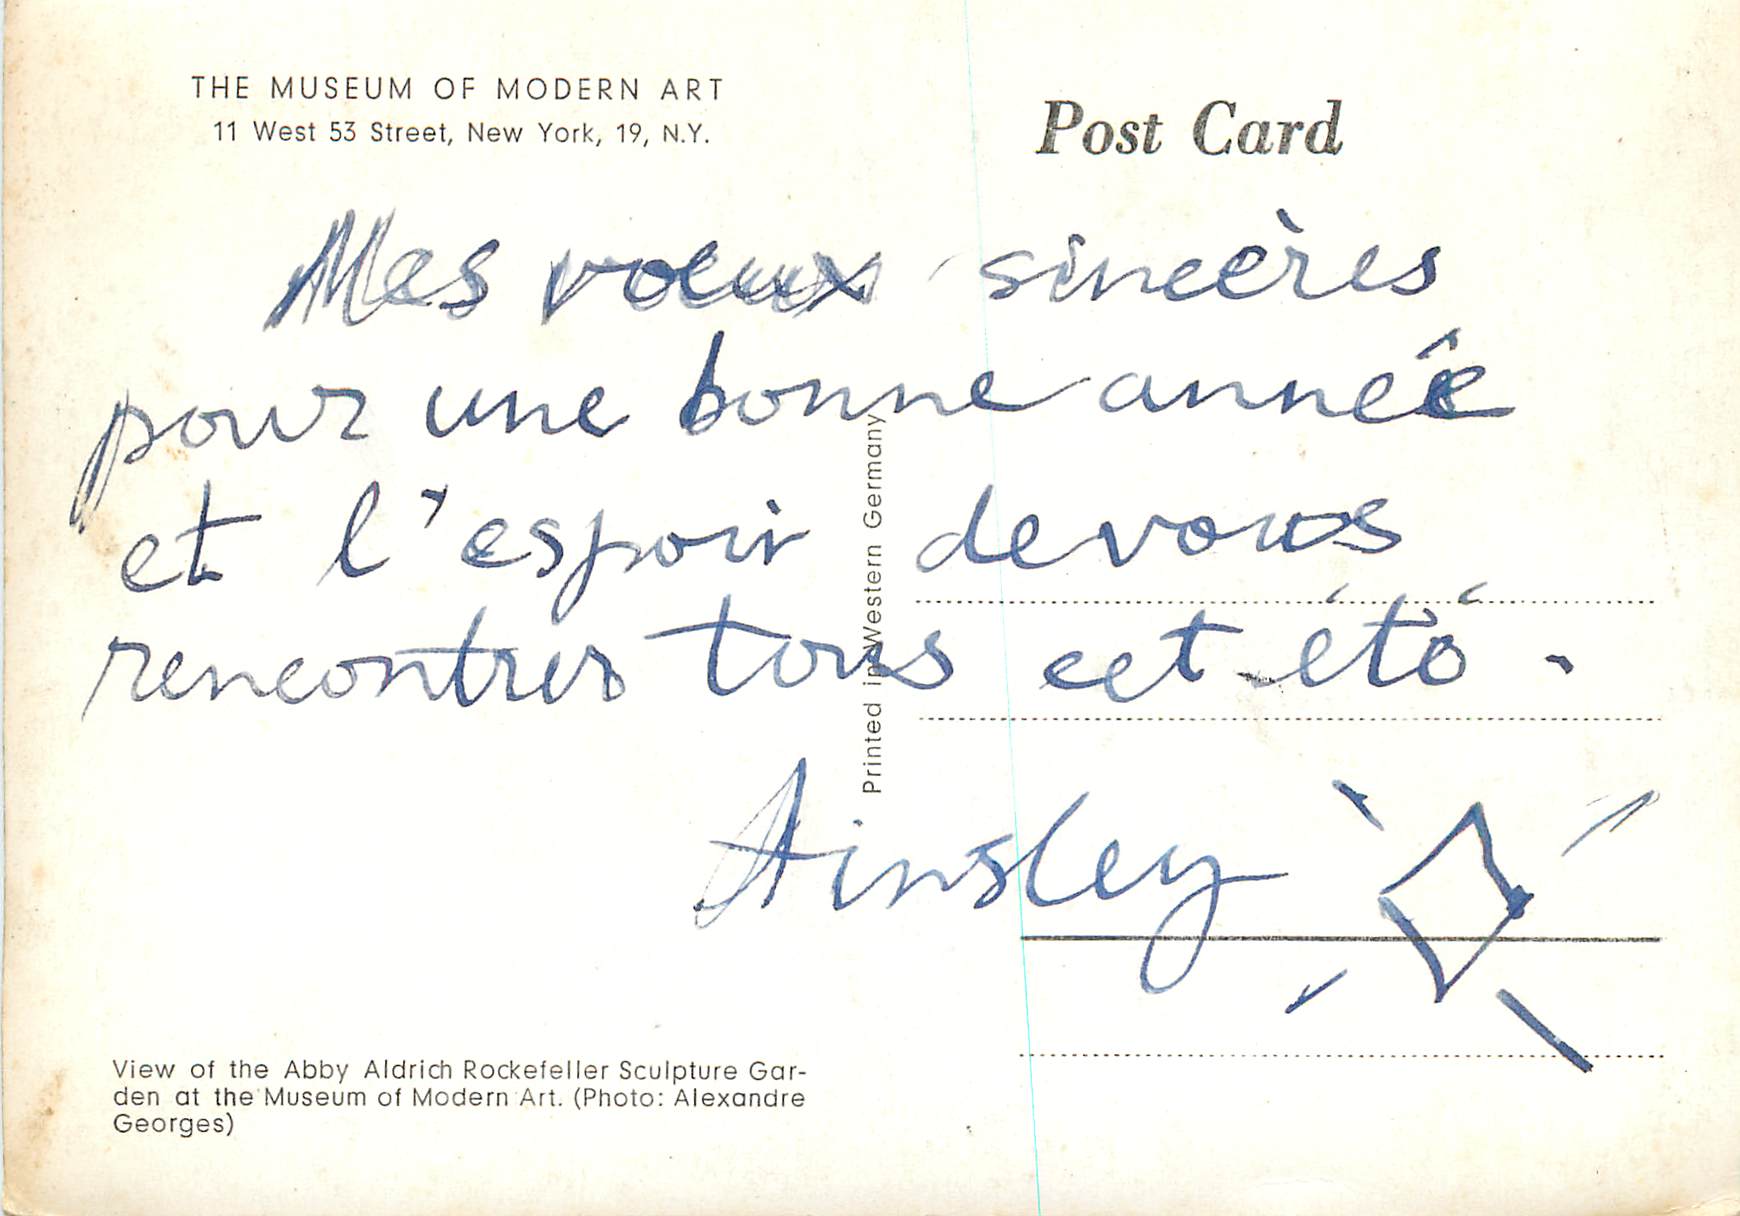 THE MUSEUM OF MODERN ART
11 West 53 Street, New York, 19, N.Y.
Post Card
Mes voeux sincères
pour une bonne année
et l'espoir de vous
rencontrer tous cet été.
Ainsley
Printed in Western Germany
View of the Abby Aldrich Rockefeller Sculpture Gar-
den at the Museum of Modern Art. (Photo: Alexandre
Georges)